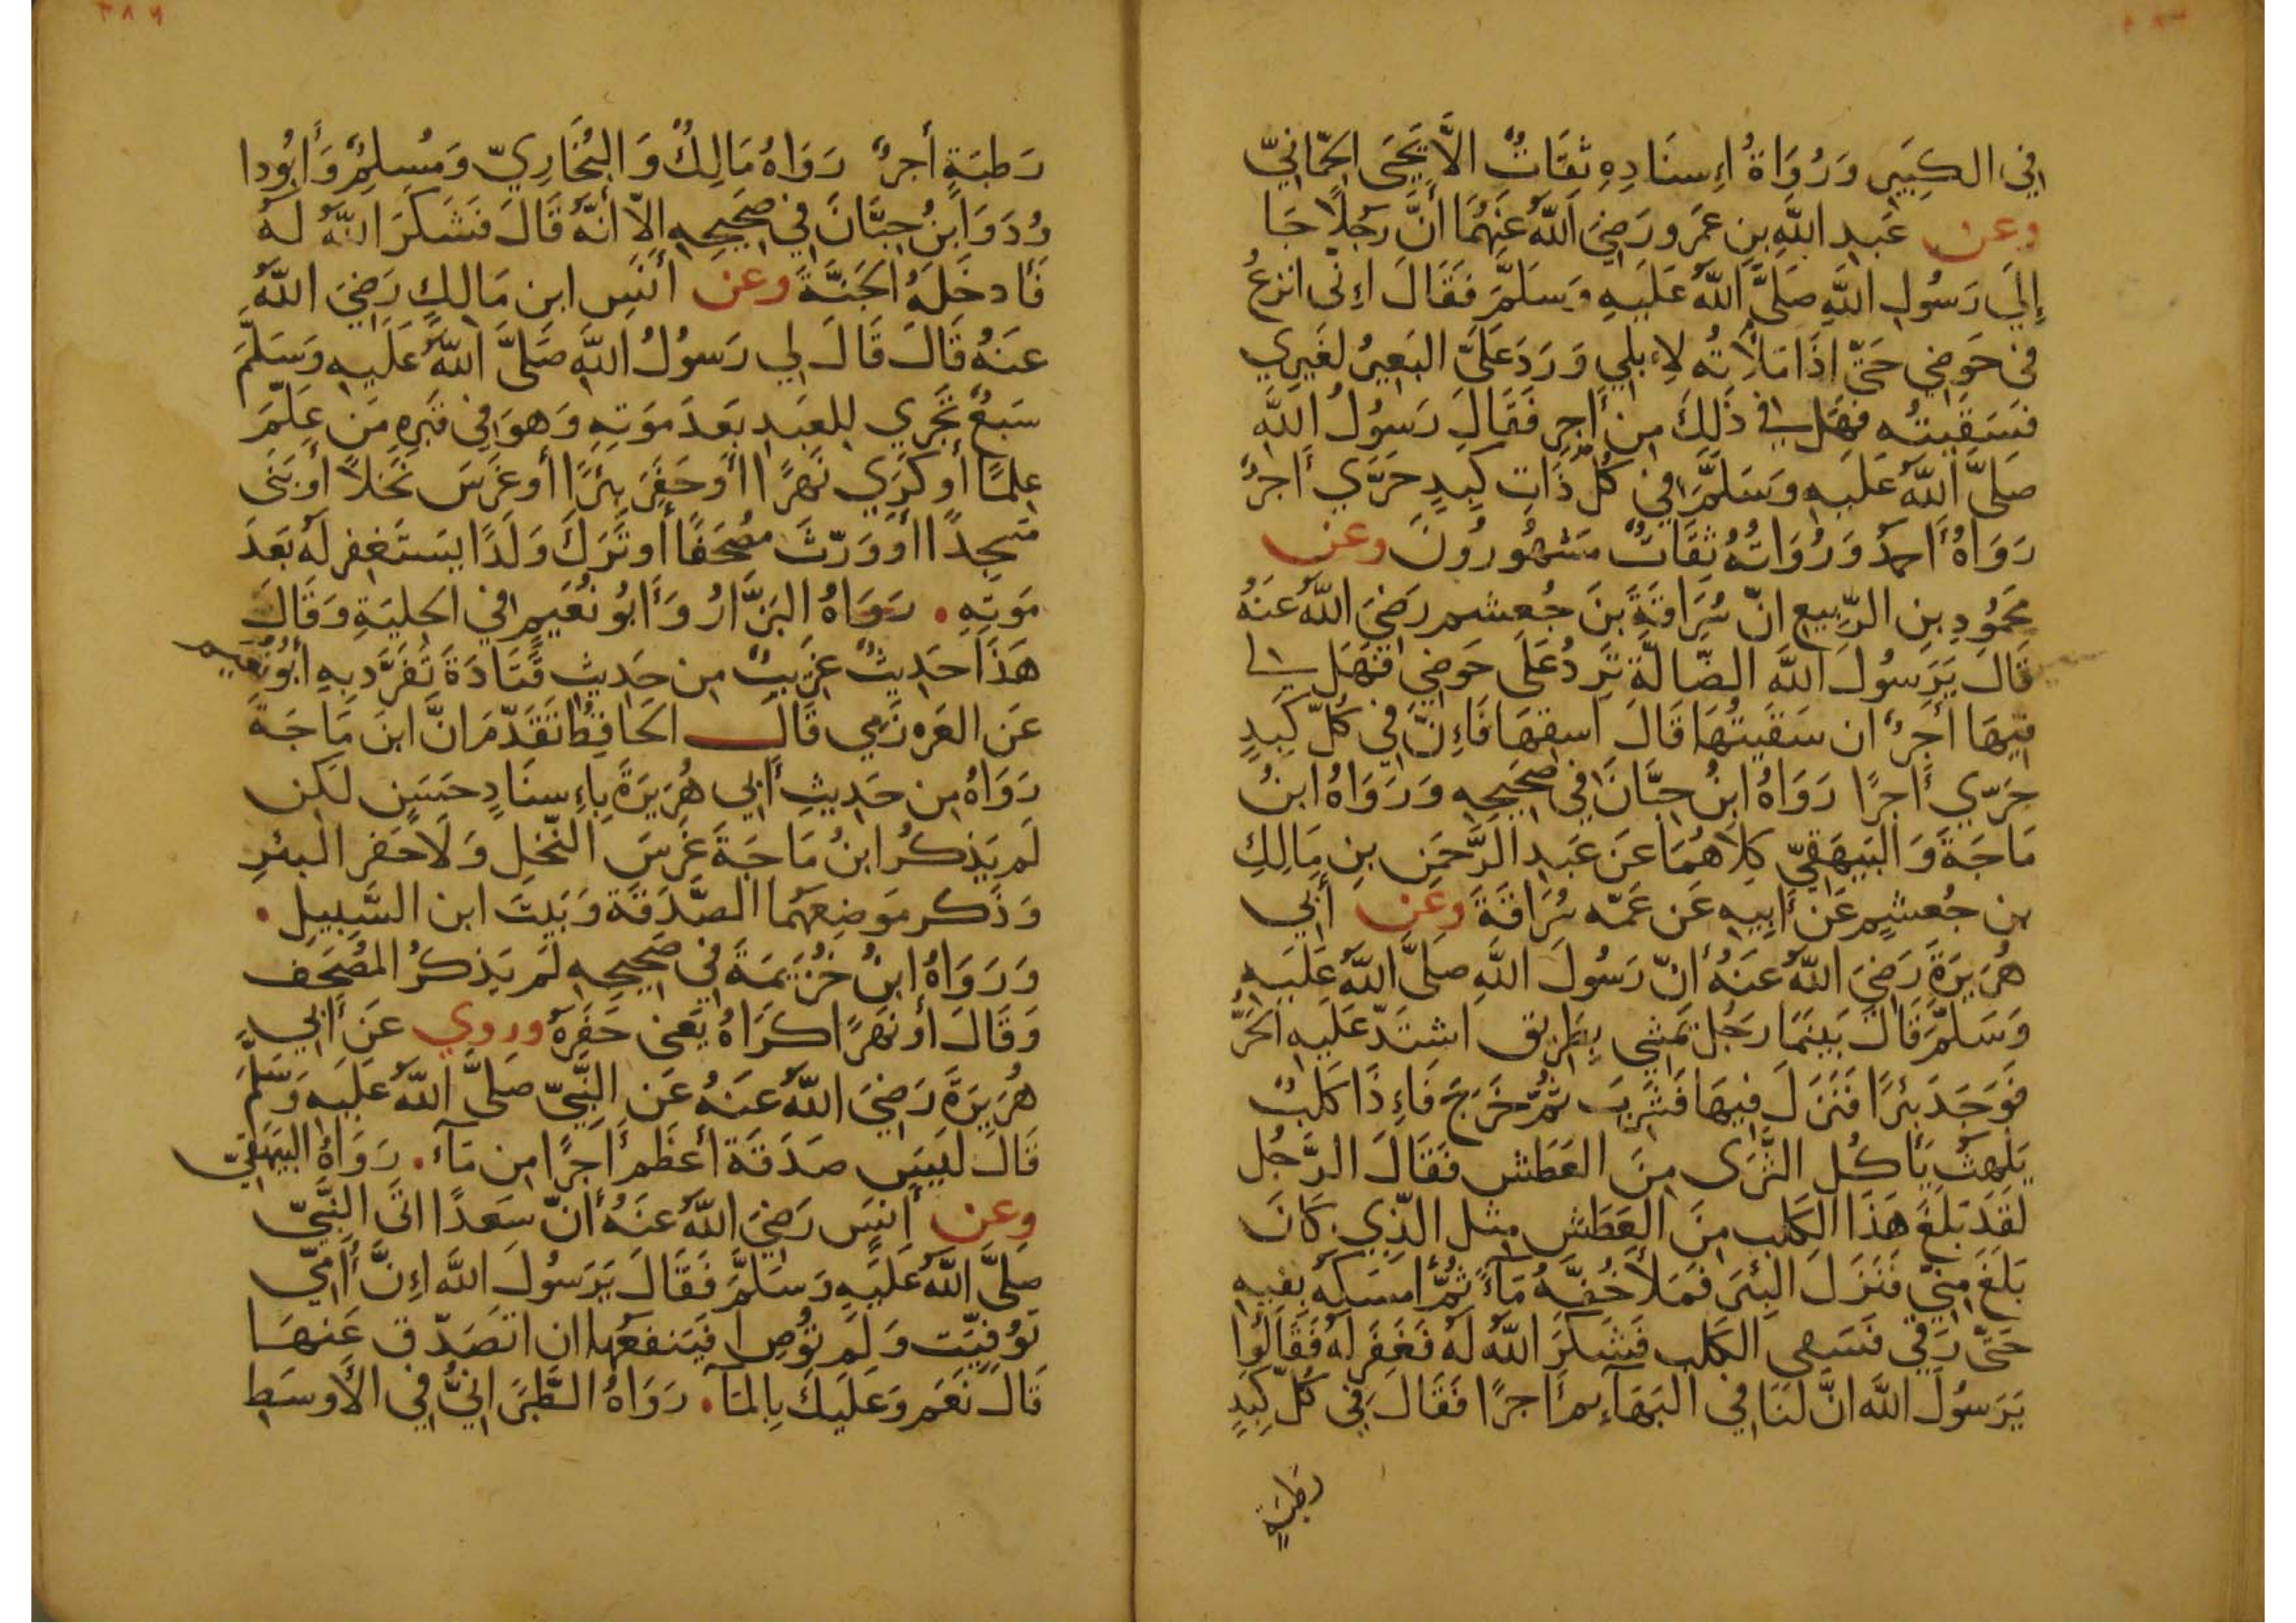 في الكَبِيرِ وَرُوَاةُ اِءسنَادِهِ ثِقَاتٌ الاَّ يَحيَى الحِمَّانِيّ
وعن عَبدِ اللَّهِ بنِ عَمَرو رَضِيَ اللَّهُ عَنهُمَا أَنَّ رَجُلًا جَا
إِلَي رَسُولِ اللَّهِ صَلَّى اللَّهُ عَلَيهِ وَسَلَّمَ فَقَالَ اِءنّى انزعُ
في حَوضِي حَتَّى اذَا مَلأتُه لاِءبلِي وَرَدَ عَلَىَّ البَعِيرُ لغَيرِي
فَسَقَيتُه فهَل في ذَلِكَ مِن أَجرٍ فَقَالَ رَسُولُ اللَّهِ
صَلَّى اللَّهُ عَلَيهِ وَسَلَّمَ في كُلّ ذَاتِ كَبِدٍ حَرَّي أَجرٌ
رَوَاهُ أَحمَدُ وَرُوَاتُهُ ثِقَاتٌ مَشهُورُونَ وعن
مَحمُودِ بنِ الرَّبِيعِ انّ سُرَاقَةَ بنَ جُعشم رَضِيَ اللَّهُ عَنهُ
قَالَ يَرَسُولَ اللَّه الضّالّة تَرِدُ عَلَى حَوضِي فَهَل لي
فِيهَا أَجرٌ ان سَقَيتُهَا قَالَ اسقِهَا فَاِءنّ فِي كُلّ كَبِدٍ
حَرّي أَجرًا رَوَاهُ ابنُ حِبَّانَ فِي صَحِيحِهِ وَرَوَاهُ ابنُ
مَاجَةَ وَالبَيهَقِيّ كِلاَهُمَا عَن عَبدِ الرَّحمَنِ بنِ مَالِكِ
بن جُعشُمٍ عَن أَبِيهِ عَن عَمّه سُرَاقَةَ وعن أَبِي
هُرَيرَةَ رَضِيَ اللَّهُ عَنهُ أَنّ رَسُولَ اللَّهِ صَلَّى اللَّهُ عَلَيهِ
وَسَلَّمَ قَالَ بَينَمَا رَجُل يَمشِي بِطَرِيق اشتَدّ عَلَيهِ الحَرُّ
فَوَجَدَ بئرًا فَنَزَلَ فِيهَا فَشَرِبَ ثُمَّ خَرَجَ فَاِءذَا كَلبٌ
يَلهثُ يَأكُل الثَّرَى مِنَ العَطَش فَقَالَ الرَّجُل
لَقَد بَلَغَ هَذَا الكَلب مِنَ العَطَش مِثل الَّذِي كَانَ
بَلَغَ مِنّي فَنَزَلَ البِئرَ فَمَلأَ خُفَّهُ مَآءً ثُمَّ أَمسَكَهُ بِفِيهِ
حَتَّى رَقِيَ فَسَقى الكَلبَ فَشَكَرَ اللَّهُ لَهُ فَغَفَرَ لَهُ فَقَالُوا
يَرَسُولَ اللَّه انَّ لَنَا فِي البَهَآئِم أَجرًا فَقَالَ فِي كُلّ كَبِدٍ
رَطبَةٍ
رَطبَةٍ أَجرٌ رَوَاهُ مَالِكٌ وَالبُخَارِيّ وَمُسلِمٌ وَأَبُو دا
وُدَ وَابنُ حِبَّانَ فِي صَحِيحِهِ اِلّا أَنّهُ قَالَ فَشَكَرَ اللَّهُ لَهُ
فَأَدخَلَهُ الجَنَّةَ وعن أَنَسِ ابن مَالِكٍ رَضِيَ اللَّهُ
عَنهُ قَالَ قَالَ لِي رَسُولُ اللَّهِ صَلَّى اللَّهُ عَلَيهِ وَسَلَّمَ
سَبعٌ تَجرِي لِلعَبدِ بَعدَ مَوتِهِ وَهوَ فِي قَبرِهِ مَن عَلّمَ
عِلمًا أَو كَرَي نَهرًا أَو حَفَرَ بِئرًا أَو غَرَسَ نَخلًا أَو بَنَى
مَسجِدًا أَو وَرّثَ مُصحَفًا أَو تَرَكَ وَلَدًا يَستَغفِر لَهُ بَعدَ
مَوتِهِ . رَوَاهُ البَزَّارُ وَأَبُو نُعَيمٍ فِي الحِليَةِ وَقَالَ
هَذَا حَدِيثٌ غَرِيبٌ مِن حَدِيثِ قَتَادَةَ تَفَرَّد بِهِ أَبُو نُعَيم
عَن العَرزَمِي قَالَ الحَافِظُ تَقَدّمَ انَّ ابنَ مَاجَةَ
رَوَاهُ مِن حَدِيثِ أَبِي هُرَيرَةَ بِاِءسنَادٍ حَسَنٍ لَكِن
لَم يَذكُر ابنُ مَاجَةَ غَرسَ النَّخلِ وَلَا حَفر البئرِ
وَذَكَر مَوضِعهُمَا الصَّدَقَة وَبَيتَ ابن السَّبِيلِ .
وَرَوَاهُ ابنُ خُزَيمَةَ فِي صَحِيحِهِ لَم يَذكُر المُصحَف
وَقَالَ أَو نَهرًا كَرَاهُ يَعنى حَفَرَهُ وروي عَن أَبِي
هُرَيرَةَ رَضِيَ اللَّهُ عَنهُ عَن النَّبِيّ صَلَّى اللَّهُ عَلَيهِ وَسَلَّمَ
قَالَ لَيسَ صَدَقَة أَعظَم أَجرًا مِن مَآءٍ . رَوَاهُ البَيهَقِيّ
وعن أَنَسٍ رَضِيَ اللَّهُ عَنهُ أَنّ سَعدًا اتَى النَّبِيّ
صَلَّى اللَّهُ عَلَيهِ وَسَلَّمَ فَقَالَ يَرَسُولَ اللَّه اِءنَّ أُمِّي
تُوُفِيّت وَلَم تُوصِ أَفَيَنفَعُهَا ان اتَصَدّق عَنهَا
قَالَ نَعَم وَعَلَيكَ بِالمَآءِ . رَوَاهُ الطَّبَرَانِيُّ فِي الأَوسَطِ